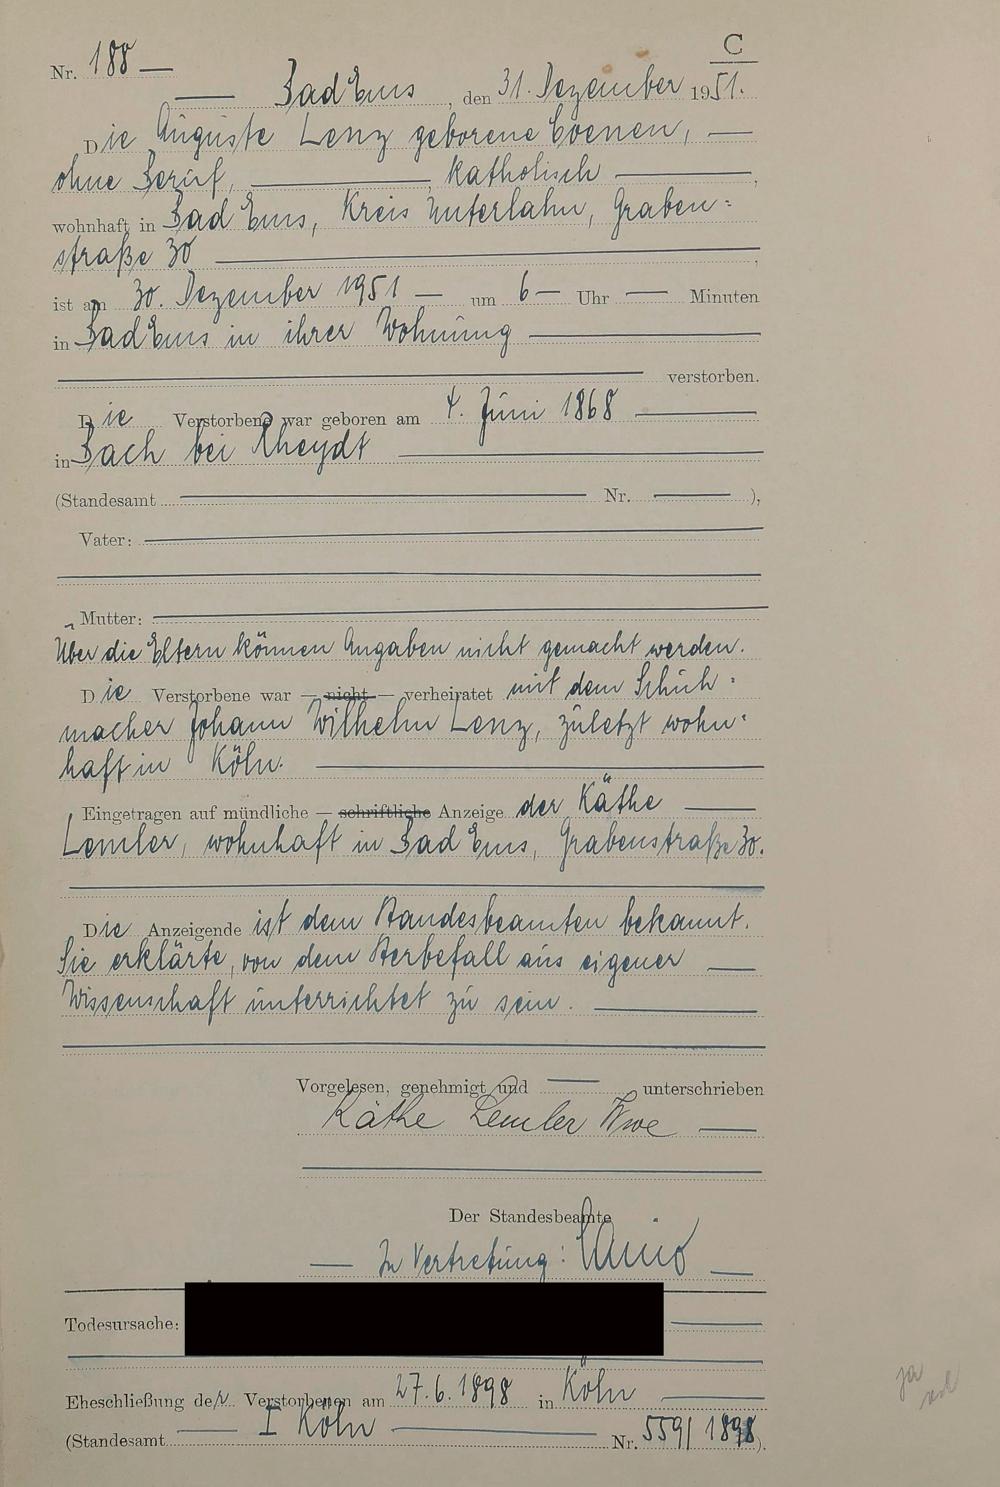 C
Nr. 188 —
— Bad Ems, den 31. Dezember 1951.
Die Auguste Lenz geborene Coenen, —
ohne Beruf, — , katholisch — ,
wohnhaft in Bad Ems, Kreis Unterlahn, Graben=
straße 30 — ,
ist am 30. Dezember 1951 — um 6 — Uhr — Minuten
in Bad Ems in ihrer Wohnung —
— verstorben.
Die Verstorbene war geboren am 4. Juni 1868 —
in Bach bei Rheydt —
(Standesamt — Nr. — ),
Vater: —
Mutter: —
Über die Eltern können Angaben nicht gemacht werden.
Die Verstorbene war — nicht — verheiratet mit dem Schuh=
macher Johann Wilhelm Lenz, zuletzt wohn=
haft in Köln. —
Eingetragen auf mündliche — schriftliche Anzeige der Käthe —
Lemler, wohnhaft in Bad Ems, Grabenstraße 30.
Die Anzeigende ist dem Standesbeamten bekannt.
Sie erklärte, von dem Sterbefall aus eigener —
Wissenschaft unterrichtet zu sein. —
Vorgelesen, genehmigt und — unterschrieben
Käthe Lemler Wwe —
Der Standesbeamte
— In Vertretung: —
Todesursache: —
Eheschließung der Verstorbenen am 27.6.1898 in Köln —
(Standesamt — I Köln — Nr. 559/1898).
ja